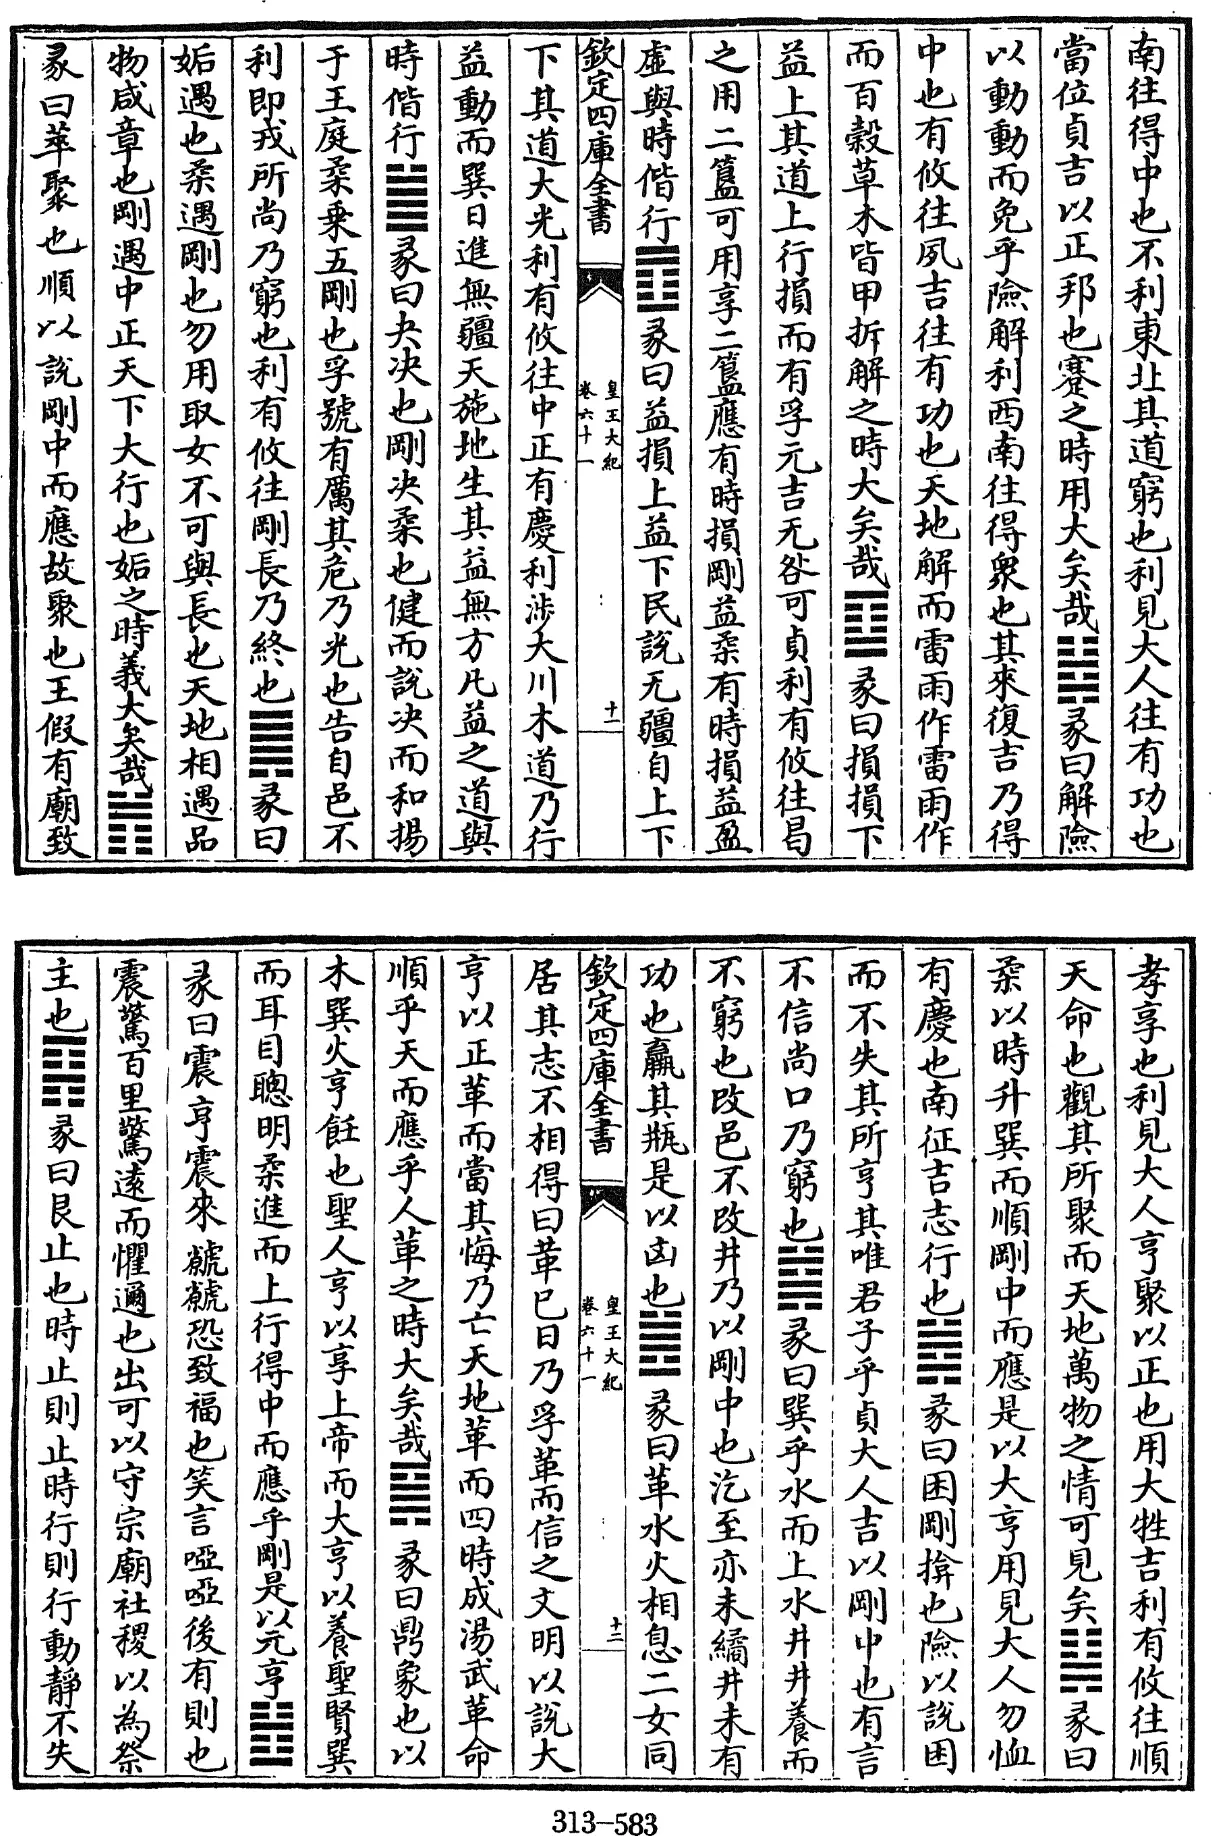 南往得中也不利東北其道窮也利見大人往有功也
當位貞吉以正邦也蹇之時用大矣哉䷧彖曰解險
以動動而免乎險解利西南往得衆也其來復吉乃得
中也有攸往夙吉往有功也天地解而雷雨作雷雨作
而百穀草木皆甲拆解之時大矣哉䷨彖曰損損下
益上其道上行損而有孚元吉无咎可貞利有攸往曷
之用二簋可用享二簋應有時損剛益柔有時損益盈
虛與時偕行䷩彖曰益損上益下民說无疆自上下
欽定四庫全書
皇王大紀
卷六十一
十一
下其道大光利有攸往中正有慶利涉大川木道乃行
益動而巽日進無疆天施地生其益無方凡益之道與
時偕行䷪彖曰夬决也剛决柔也健而說决而和揚
于王庭柔乗五剛也孚號有厲其危乃光也告自邑不
利即戎所尚乃窮也利有攸往剛長乃終也䷫彖曰
姤遇也柔遇剛也勿用取女不可與長也天地相遇品
物咸章也剛遇中正天下大行也姤之時義大矣哉䷬
彖曰萃聚也順以說剛中而應故聚也王假有廟致
孝享也利見大人亨聚以正也用大牲吉利有攸往順
天命也觀其所聚而天地萬物之情可見矣䷭彖曰
柔以時升巽而順剛中而應是以大亨用見大人勿恤
有慶也南征吉志行也䷮彖曰困剛揜也險以說困
而不失其所亨其唯君子乎貞大人吉以剛中也有言
不信尚口乃窮也䷯彖曰巽乎水而上水井井養而
不窮也改邑不改井乃以剛中也汔至亦未繘井未有
功也羸其瓶是以凶也䷰彖曰革水火相息二女同
欽定四庫全書
皇王大紀
卷六十一
十二
居其志不相得曰革巳日乃孚革而信之文明以說大
亨以正革而當其悔乃亡天地革而四時成湯武革命
順乎天而應乎人革之時大矣哉䷱彖曰鼎象也以
木巽火亨飪也聖人亨以享上帝而大亨以養聖賢巽
而耳目聰明柔進而上行得中而應乎剛是以元亨䷲
彖曰震亨震來虩虩恐致福也笑言啞啞後有則也
震驚百里驚遠而懼邇也出可以守宗廟社稷以為祭
主也䷳彖曰艮止也時止則止時行則行動靜不失
313-583